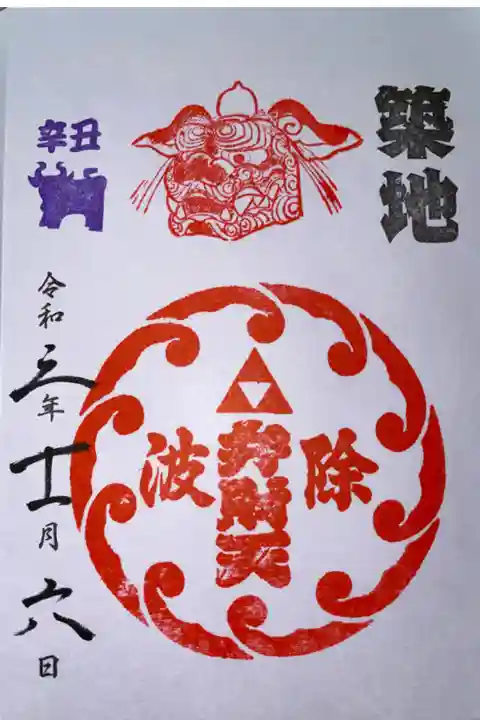 築地
波除
弁財天
辛丑
令和三年十一月六日